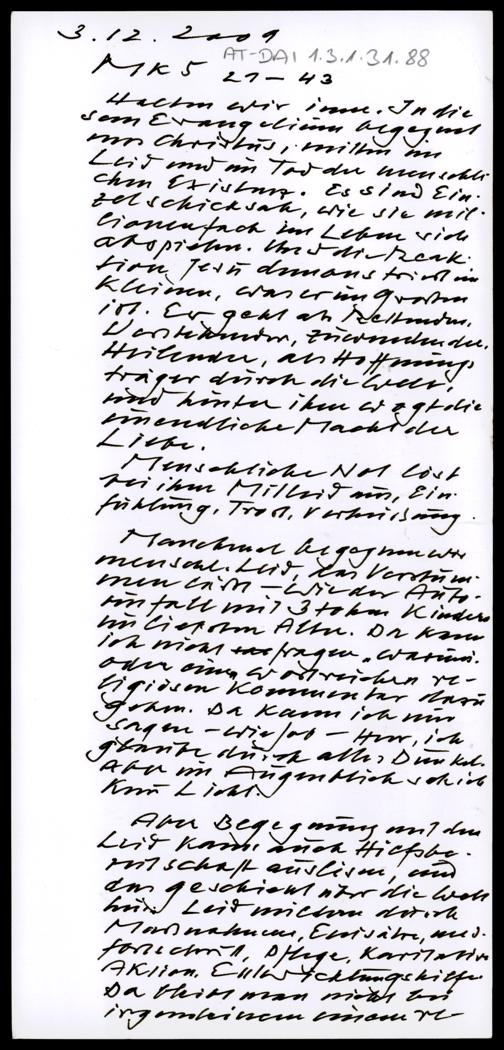 3.12.2009
AT-DAI 1.3.1.31.88
MK 5 21-43
Halten wir inne. In die
sem Evangelium begegnet
uns Christus, mitten im
Leid und im Tod der menschli
chen Existenz. Es sind Ein-
zelschicksale, wie sie mil-
lionenfach im Leben sich
abspielen. Und die Reak-
tion Jesu demonstriert im
Kleinen, was er im Großen
ist. Er geht als Rettender,
Verstehender, zuwendender,
Heilender, als Hoffnungs
träger durch die Welt,
und hinter ihm wogt die
unendliche Macht der
Liebe.
Menschliche Not löst
bei ihm Mitleid aus, Ein-
fühlung, Trost, Verheißung.
Manchmal begegnen wir
menschl. Leid, das Verstum-
men läßt - wie der Auto-
unfall mit 3 toten Kindern
im liebsten Alter. Da kann
ich nicht fragen "warum"
oder einen wortreichen re-
ligiösen Kommentar dazu
geben. Da kann ich nur
sagen - wie Job - Herr, ich
glaube durch alles Dunkel.
Aber im Augenblick seh ich
kein Licht.
Aber Begegnung mit dem
Leid kann auch Hilfsbe-
reitschaft auslösen, und
das geschieht über die Welt
hin. Leid mildern durch
Maßnahmen, Einsätze, med.
Fortschritt, Pflege, Karitative
Aktion, Entwicklungshilfe
Da bleibt man nicht bei
irgendeinem